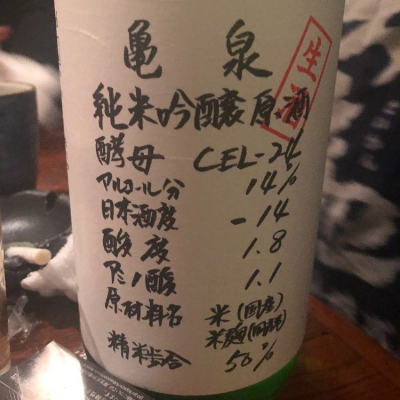 亀泉
生酒
純米吟醸原酒
酵母 CEL-24
アルコール分 14%
日本酒度 -14
酸度 1.8
アミノ酸 1.1
原材料名 米(国産)
米麹(国産米)
精米歩合 50%